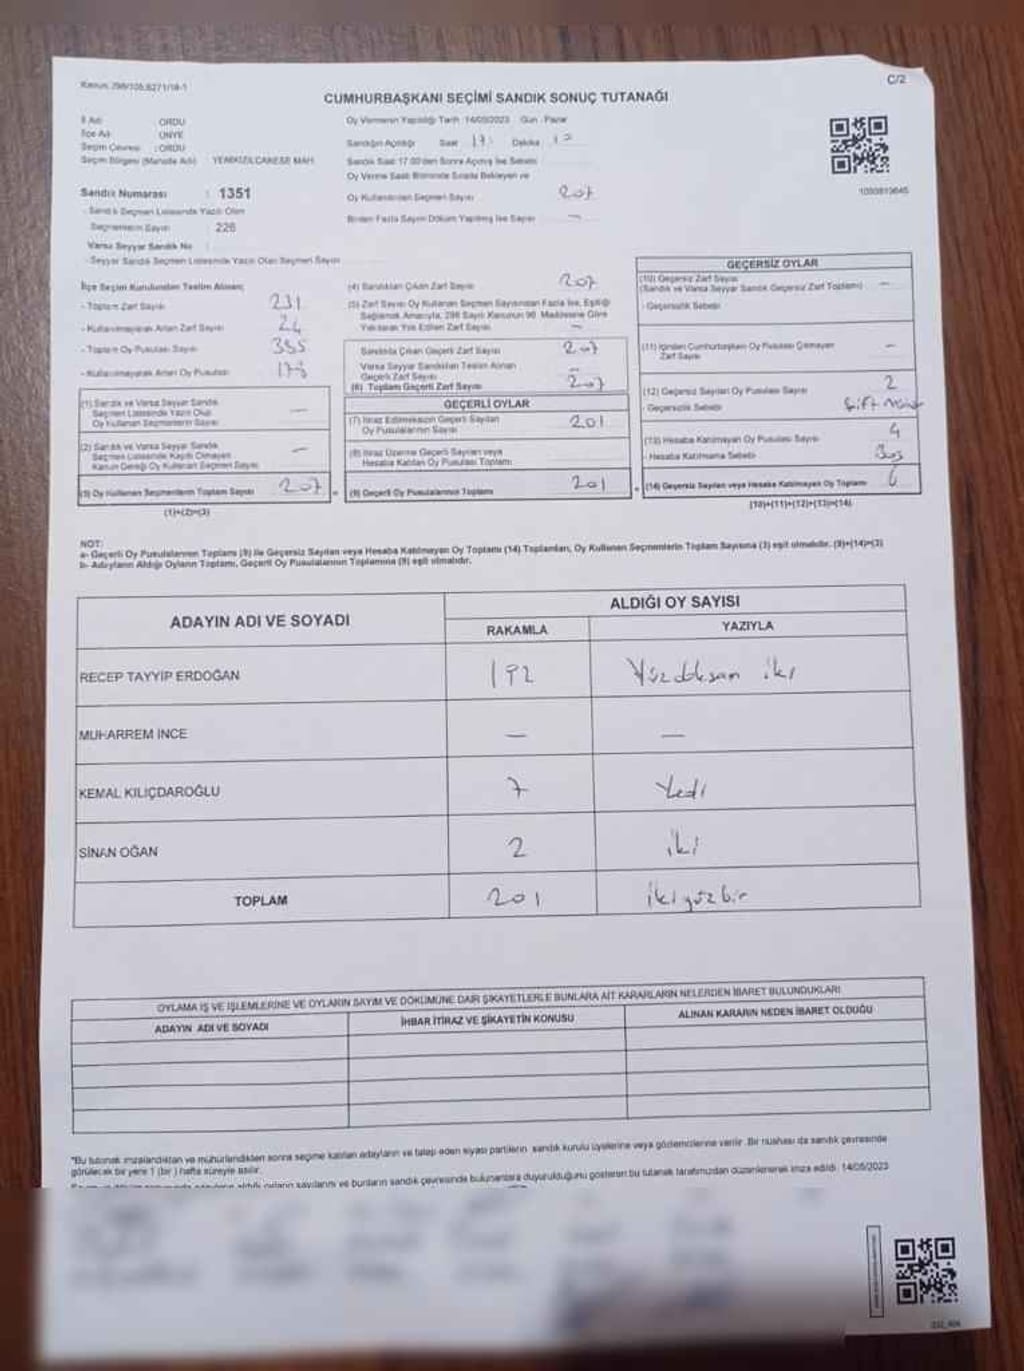 Kanun: 298/105,6271/18-1
C/2
CUMHURBAŞKANI SEÇİMİ SANDIK SONUÇ TUTANAĞI
İl Adı : ORDU
İlçe Adı : ÜNYE
Seçim Çevresi : ORDU
Seçim Bölgesi (Mahalle Adı) : YENİKIZILCAKESE MAH.
Sandık Numarası : 1351
- Sandık Seçmen Listesinde Yazılı Olan
Seçmenlerin Sayısı 226
Varsa Seyyar Sandık No
- Seyyar Sandık Seçmen Listesinde Yazılı Olan Seçmen Sayısı
Oy Vermenin Yapıldığı Tarih : 14/05/2023 Gün : Pazar
Sandığın Açıldığı Saat 17: Dakika
Sandık Saat 17.00'den Sonra Açılmış İse Sebebi
Oy Verme Saati Bitiminde Sırada Bekleyen ve
Oy Kullandırılan Seçmen Sayısı 207
Birden Fazla Sayım Döküm Yapılmış İse Sayısı —
1050813645
İlçe Seçim Kurulundan Teslim Alınan;
- Toplam Zarf Sayısı 231
- Kullanılmayarak Artan Zarf Sayısı 24
- Toplam Oy Pusulası Sayısı 355
- Kullanılmayarak Artan Oy Pusulası
(1) Sandık ve Varsa Seyyar Sandık
Seçmen Listesinde Yazılı Olup
Oy Kullanan Seçmenlerin Sayısı —
(2) Sandık ve Varsa Seyyar Sandık
Seçmen Listesinde Kayıtlı Olmayan
Kanun Gereği Oy Kullanan Seçmen Sayısı —
(3) Oy Kullanan Seçmenlerin Toplam Sayısı 207
(1)+(2)=(3)
(4) Sandıktan Çıkan Zarf Sayısı 207
(5) Zarf Sayısı Oy Kullanan Seçmen Sayısından Fazla İse, Eşitliği
Sağlamak Amacıyla, 298 Sayılı Kanunun 98. Maddesine Göre
Yakılarak Yok Edilen Zarf Sayısı —
Sandıkta Çıkan Geçerli Zarf Sayısı 207
Varsa Seyyar Sandıktan Teslim Alınan
Geçerli Zarf Sayısı —
(6) Toplam Geçerli Zarf Sayısı 207
GEÇERLİ OYLAR
(7) İtiraz Edilmeksizin Geçerli Sayılan
Oy Pusulalarının Sayısı 201
(8) İtiraz Üzerine Geçerli Sayılan veya
Hesaba Katılan Oy Pusulası Toplamı
(9) Geçerli Oy Pusulalarının Toplamı 201
GEÇERSİZ OYLAR
(10) Geçersiz Zarf Sayısı
(Sandık ve Varsa Seyyar Sandık Geçersiz Zarf Toplamı) —
- Geçersizlik Sebebi
(11) İçinden Cumhurbaşkanı Oy Pusulası Çıkmayan
Zarf Sayısı —
(12) Geçersiz Sayılan Oy Pusulası Sayısı 2
- Geçersizlik Sebebi Çift
(13) Hesaba Katılmayan Oy Pusulası Sayısı 4
- Hesaba Katılmama Sebebi
(14) Geçersiz Sayılan veya Hesaba Katılmayan Oy Toplamı 6
(10)+(11)+(12)+(13)=(14)
NOT:
a- Geçerli Oy Pusulalarının Toplamı (9) ile Geçersiz Sayılan veya Hesaba Katılmayan Oy Toplamı (14) Toplamları, Oy Kullanan Seçmenlerin Toplam Sayısına (3) eşit olmalıdır. (9)+(14)=(3)
b- Adayların Aldığı Oyların Toplamı, Geçerli Oy Pusulalarının Toplamına (9) eşit olmalıdır.
ADAYIN ADI VE SOYADI
ALDIĞI OY SAYISI
RAKAMLA YAZIYLA
RECEP TAYYİP ERDOĞAN 192 Yüzdoksan iki
MUHARREM İNCE — —
KEMAL KILIÇDAROĞLU 7 Yedi
SİNAN OĞAN 2 iki
TOPLAM 201 ikiyüzbir
OYLAMA İŞ VE İŞLEMLERİNE VE OYLARIN SAYIM VE DÖKÜMÜNE DAİR ŞİKAYETLERLE BUNLARA AİT KARARLARIN NELERDEN İBARET BULUNDUKLARI
ADAYIN ADI VE SOYADI İHBAR İTİRAZ VE ŞİKAYETİN KONUSU ALINAN KARARIN NEDEN İBARET OLDUĞU
*Bu tutanak imzalandıktan ve mühürlendikten sonra seçime katılan adayların ve talep eden siyasi partilerin sandık kurulu üyelerine veya gözlemcilerine verilir. Bir nüshası da sandık çevresinde
görülecek bir yere 1 (bir) hafta süreyle asılır.
aldık oyların sayılarını ve bunların sandık çevresinde bulunanlara duyurulduğunu gösteren bu tutanak tarafımızdan düzenlenerek imza edildi. 14/05/2023